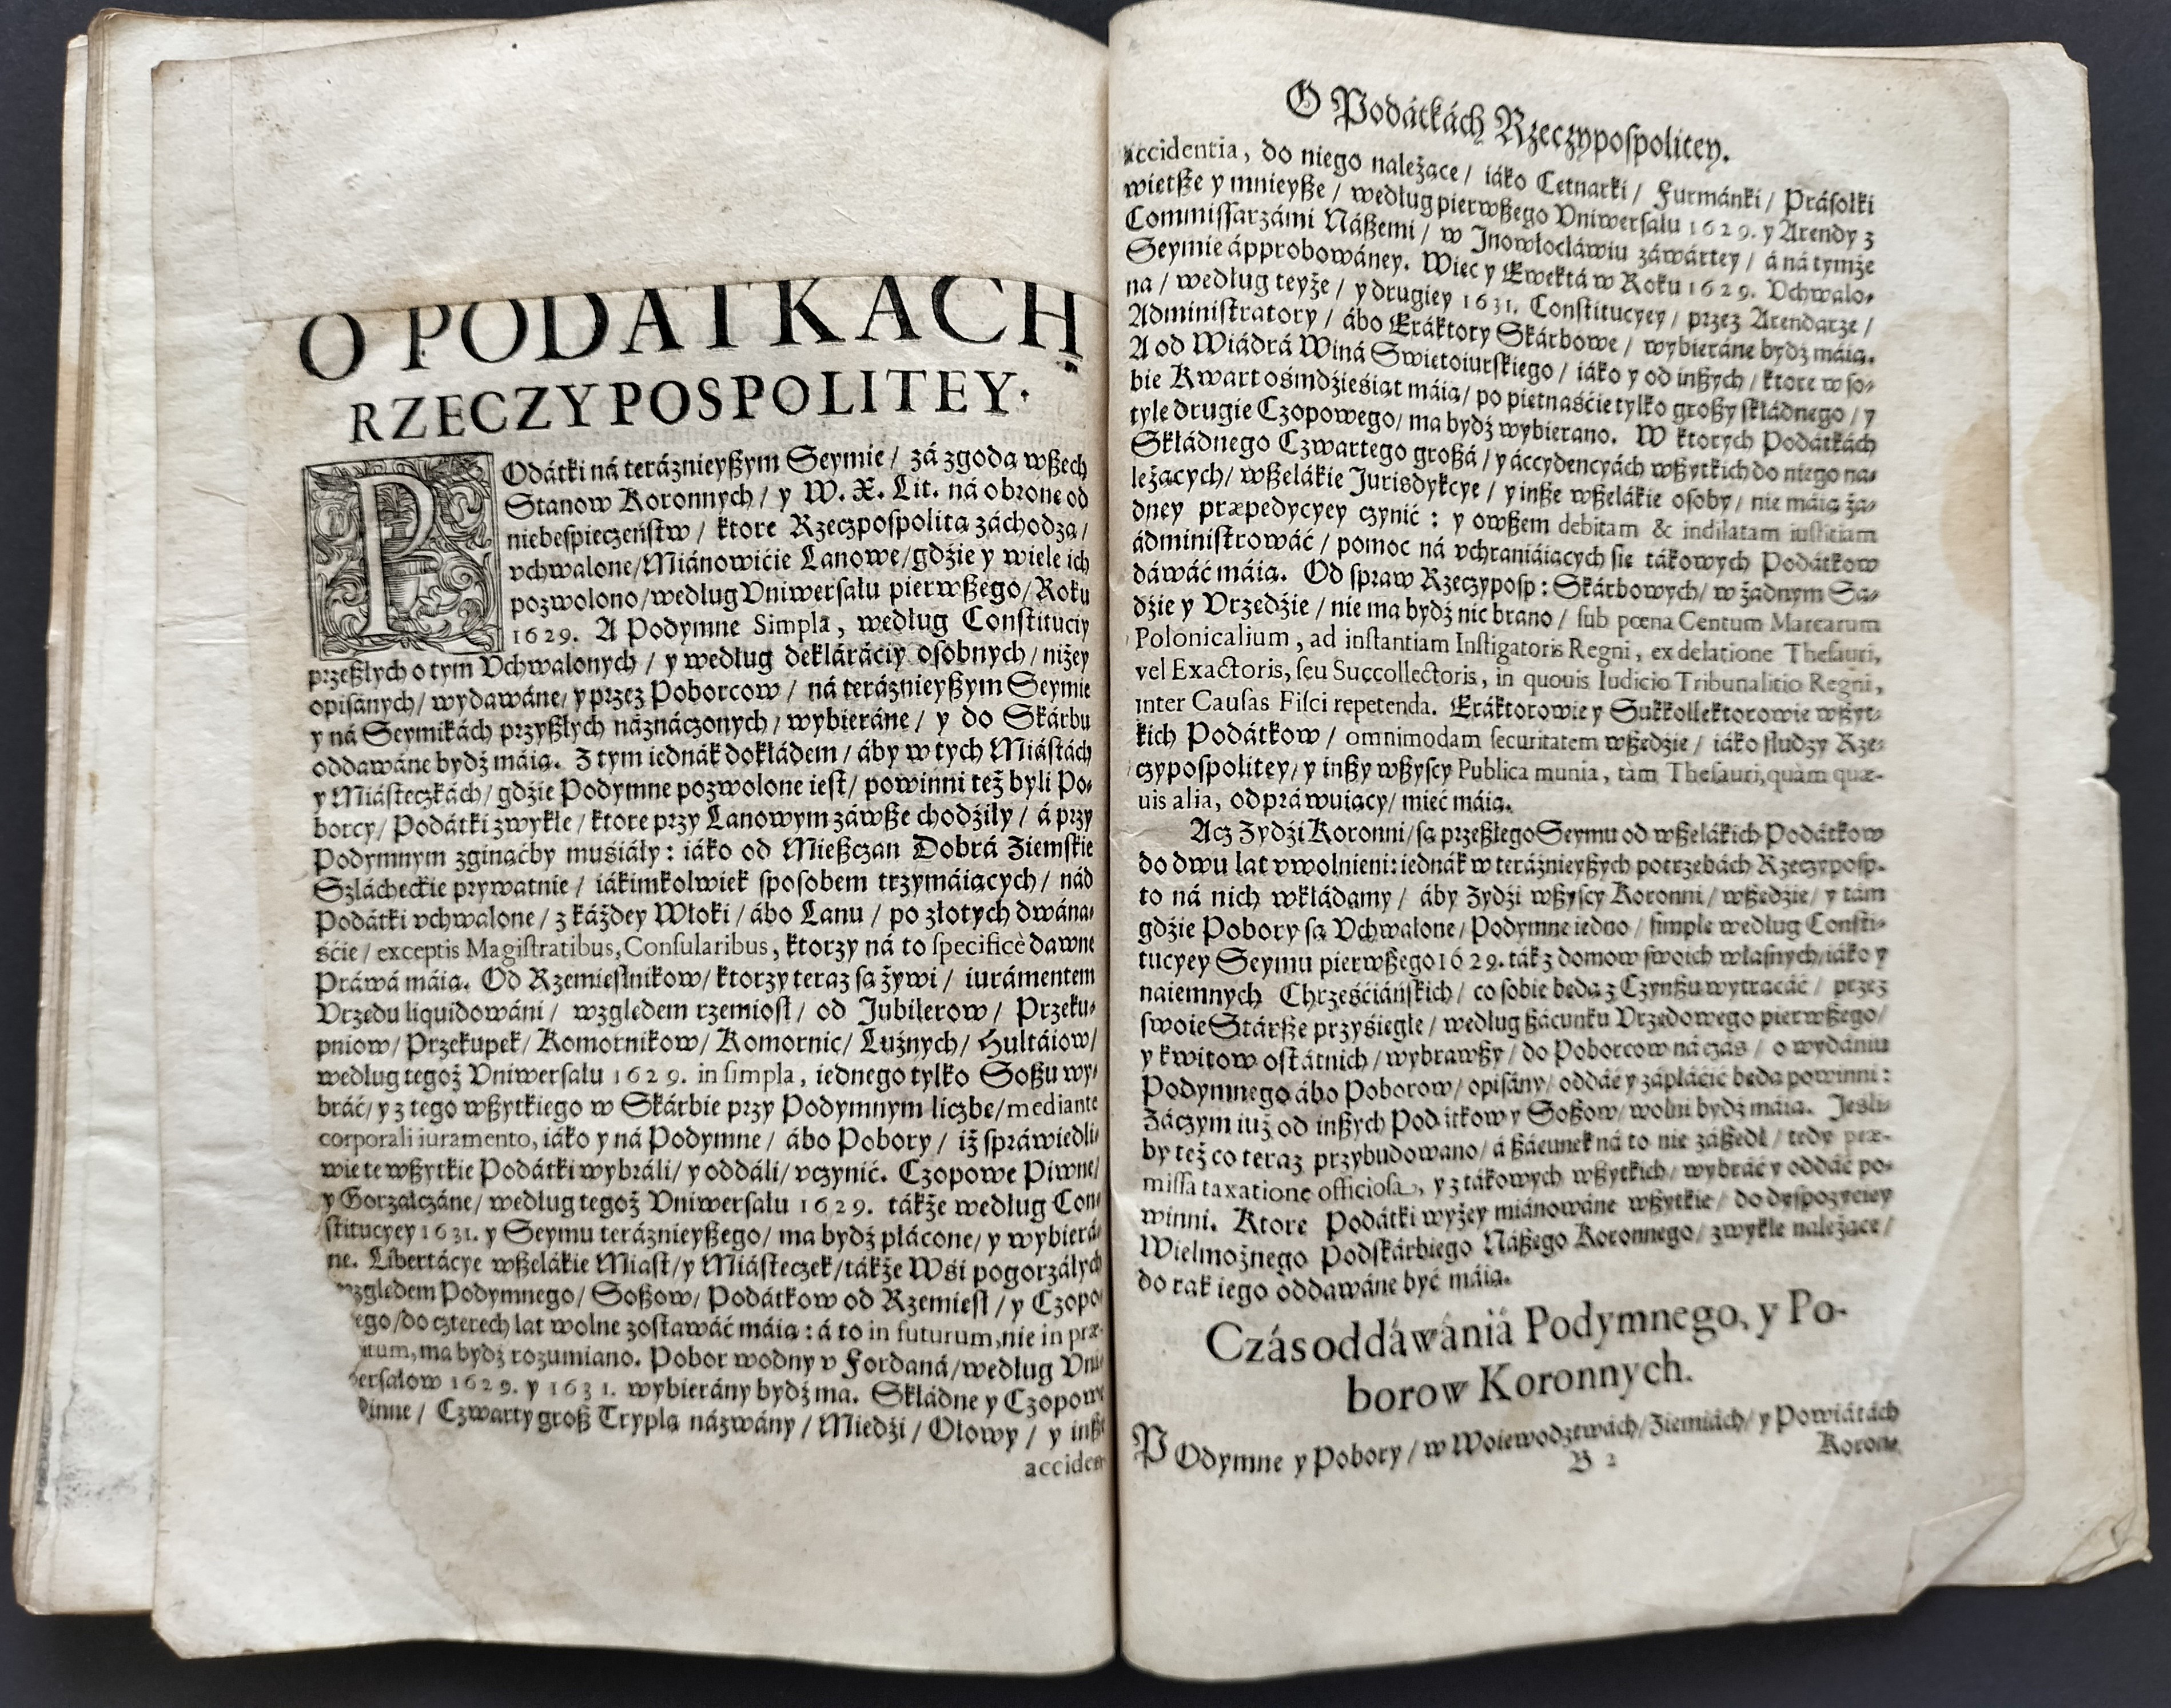 O PODATKACH
RZECZYPOSPOLITEY.
POdátki ná teráznieyßym Seymie / zá zgodą wßech
Stanow Koronnych / y W. X. Lit. ná obronę od
niebeſpieczeńſtw / ktore Rzeczpoſpolitą záchodzą /
vchwalone / Miánowićie Lanowe / gdźie y wiele ich
pozwolono / według Vniwerſału pierwßego / Roku
1629. A Podymne Simpla, według Conſtituciy
przeßłych o tym Vchwalonych / y według dekláráciy oſobnych / niżey
opiſánych / wydawáne / y przez Poborcow / ná teráznieyßym Seymie
y ná Seymikách przyßłych náznáczonych / wybieráne / y do Skárbu
oddawáne bydź máią. Z tym iednák dokłádem / áby w tych Miáſtách
y Miáſteczkách / gdźie Podymne pozwolone ieſt / powinni też byli Po-
borcy / Podátki zwykłe / ktore przy Lanowym záwße chodźiły / á przy
Podymnym zginąćby muśiáły : iáko od Mießczan Dobrá Ziemſkie
Szlácheckie prywatnie / iákimkolwiek ſpoſobem trzymáiących / nád
Podátki vchwalone / z káżdey Włoki / ábo Lanu / po złotych dwána-
śćie / exceptis Magiſtratibus, Conſularibus, ktorzy ná to ſpecificè dawne
Práwá máią. Od Rzemieſlnikow / ktorzy teraz ſą żywi / iurámentem
Vrzędu liquidowáni / względem rzemioſł / od Jubilerow / Przeku-
pniow / Przekupek / Komornikow / Komornic / Luźnych / Hultáiow /
według tegoż Vniwerſału 1629. in ſimpla, iednego tylko Soßu wy-
bráć / y z tego wßytkiego w Skárbie przy Podymnym liczbę / mediante
corporali iuramento, iáko y ná Podymne / ábo Pobory / iż ſpráwiedli-
wie te wßytkie Podátki wybráli / y oddáli / vczynić. Czopowe Piwne /
y Gorzałczáne / według tegoż Vniwerſału 1629. tákże według Con-
ſtitucyey 1631. y Seymu teráznieyßego / ma bydź płácone / y wybierá-
ne. Libertácye wßelákie Miaſt / y Miáſteczek / tákże Wśi pogorzáłych
względem Podymnego / Soßow / Podátkow od Rzemieſł / y Czopo-
ego / do czterech lat wolne zoſtawáć máią : á to in futurum, nie in præ-
itum, ma bydź rozumiano. Pobor wodny v Fordaná / według Vni-
erſałow 1629. y 1631. wybierány bydź ma. Skłádne y Czopowe
Winne / Czwarty groß Tryplą názwány / Miedźi / Ołowy / y inße
acciden
O Podátkách Rzeczypoſpolitey.
accidentia, do niego należące / iáko Cetnarki / Furmánki / Práſołki
więtße y mnieyße / według pierwßego Vniwerſału 1629. y Arendy z
Commiſſarzámi Náßemi / w Jnowłocláwiu záwártey / á ná tymże
Seymie ápprobowáney. Więc y Ewektá w Roku 1629. Vchwalo-
na / według teyże / y drugiey 1631. Conſtitucyey / przez Arendarze /
Adminiſtratory / ábo Exáktory Skárbowe / wybieráne bydź máią.
A od Wiádrá Winá Swiętoiurſkiego / iáko y od inßych / ktore w ſo-
bie Kwart ośmdźieśiąt máią / po piętnaśćie tylko großy ſkłádnego / y
tyle drugie Czopowego / ma bydź wybierano. W ktorych Podátkách
Skłádnego Czwartego großá / y áccydencyách wßytkich do niego na-
leżących / wßelákie Jurisdykcye / y inße wßelákie oſoby / nie máią ża-
dney præpedycyey czynić : y owßem debitam & indilatam iuſtitiam
ádminiſtrowáć / pomoc ná vchraniáiących ſię tákowych Podátkow
dáwáć máią. Od ſpraw Rzeczypoſp : Skárbowych / w żadnym Są-
dźie y Vrzędźie / nie ma bydź nic brano / ſub pœna Centum Marcarum
Polonicalium, ad inſtantiam Inſtigatoris Regni, ex delatione Theſauri,
vel Exactoris, ſeu Succollectoris, in quouis Iudicio Tribunalitio Regni,
inter Cauſas Fiſci repetenda. Exáktorowie y Sukkollektorowie wßyt-
kich Podátkow / omnimodam ſecuritatem wßędźie / iáko ſłudzy Rze-
czypoſpolitey / y inßy wßyſcy Publica munia, tàm Theſauri, quàm quæ-
uis alia, odpráwuiący / mieć máią.
Acz Żydźi Koronni / ſą przeßłego Seymu od wßelákich Podátkow
do dwu lat vwolnieni : iednák w teráznieyßych potrzebách Rzeczypoſp.
to ná nich wkłádamy / áby Żydźi wßyſcy Koronni / wßędźie / y tám
gdźie Pobory ſą Vchwalone / Podymne iedno / ſimple według Conſti-
tucyey Seymu pierwßego 1629. ták z domow ſwoich właſnych / iáko y
naiemnych Chrześćiáńſkich / co ſobie będą z Czynßu wytrącáć / przez
ſwoie Stárße przyśięgłe / według ßácunku Vrzędowego pierwßego /
y kwitow oſtátnich / wybrawßy / do Poborcow ná czás / o wydániu
Podymnego ábo Poborow / opiſány / oddáć y zápłáćić będą powinni :
Záczym iuż od inßych Podátkow y Soßow / wolni bydź máią. Jeſli-
by też co teraz przybudowano / á ßácunek ná to nie záßedł / tedy præ-
miſſa taxatione officioſa, y z tákowych wßytkich / wybráć y oddáć po-
winni. Ktore Podátki wyżey miánowáne wßytkie / do dyſpozycyey
Wielmożnego Podſkárbiego Náßego Koronnego / zwykłe należące /
do rąk iego oddawáne być máią.
Czás oddáwánia Podymnego, y Po-
borow Koronnych.
POdymne y Pobory / w Woiewodztwách / Ziemiách / y Powiátách
B 2
Koron-